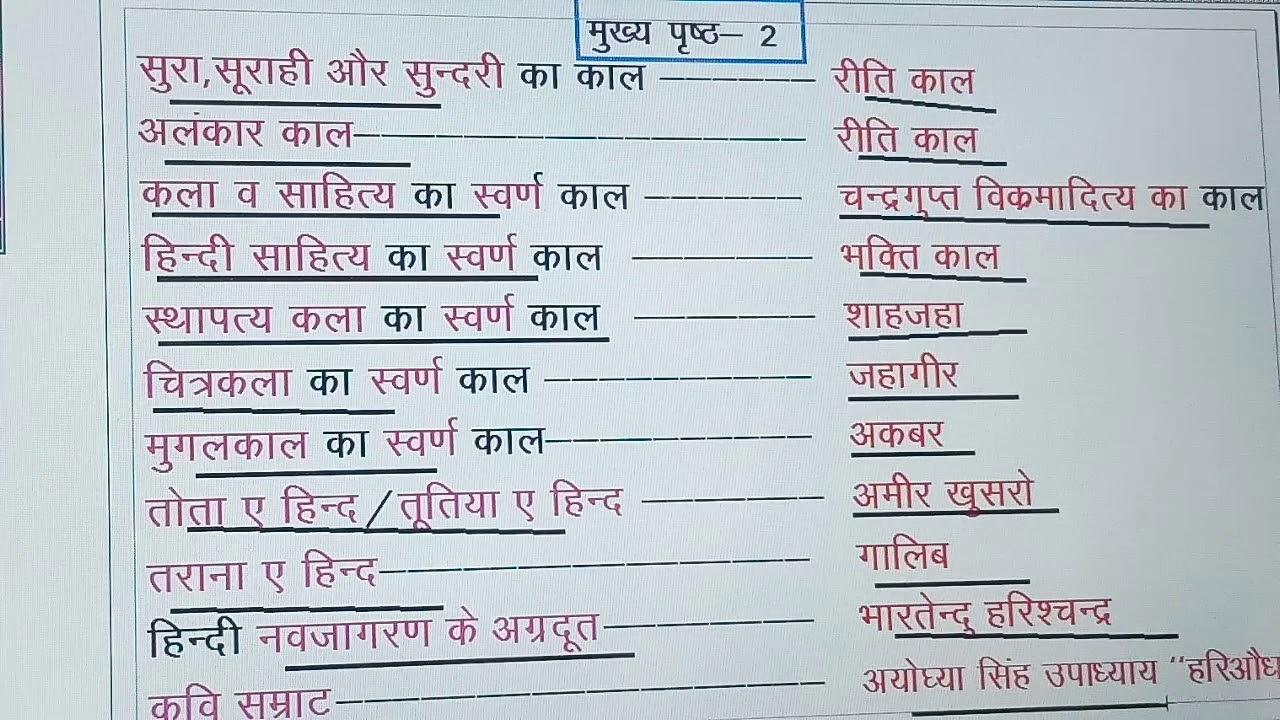 मुख्य पृष्ठ– 2
सुरा,सूराही और सुन्दरी का काल ———————— रीति काल
अलंकार काल———————————————— रीति काल
कला व साहित्य का स्वर्ण काल —————— चन्द्रगुप्त विकमादित्य का काल
हिन्दी साहित्य का स्वर्ण काल ——————— भक्ति काल
स्थापत्य कला का स्वर्ण काल ——————— शाहजहा
चित्रकला का स्वर्ण काल —————————— जहागीर
मुगलकाल का स्वर्ण काल—————————— अकबर
तोता ए हिन्द/तूतिया ए हिन्द ——————— अमीर खुसरो
तराना ए हिन्द———————————————— गालिब
हिन्दी नवजागरण के अग्रदूत———————— भारतेन्दु हरिश्चन्द्र
कवि सम्राट—————————————————— अयोध्या सिंह उपाध्याय "हरिऔध